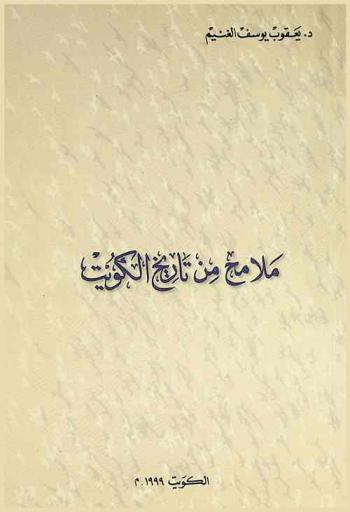 د. يعقوب يوسف الغنيم
ملامح من تاريخ الكويت
الكويت ١٩٩٩ م